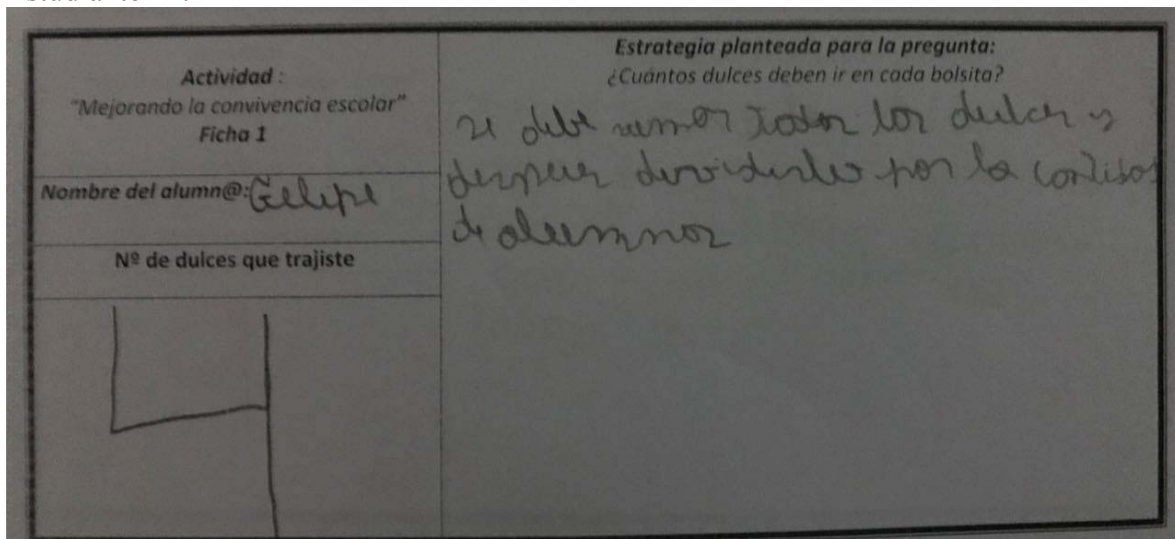 Actividad :
"Mejorando la convivencia escolar"
Ficha 1
Nombre del alumn@: Felipe
Nº de dulces que trajiste
4
Estrategia planteada para la pregunta:
¿Cuántos dulces deben ir en cada bolsita?
se debe sumar todos los dulces y
despues dividirlos por la cantidad
de alumnos